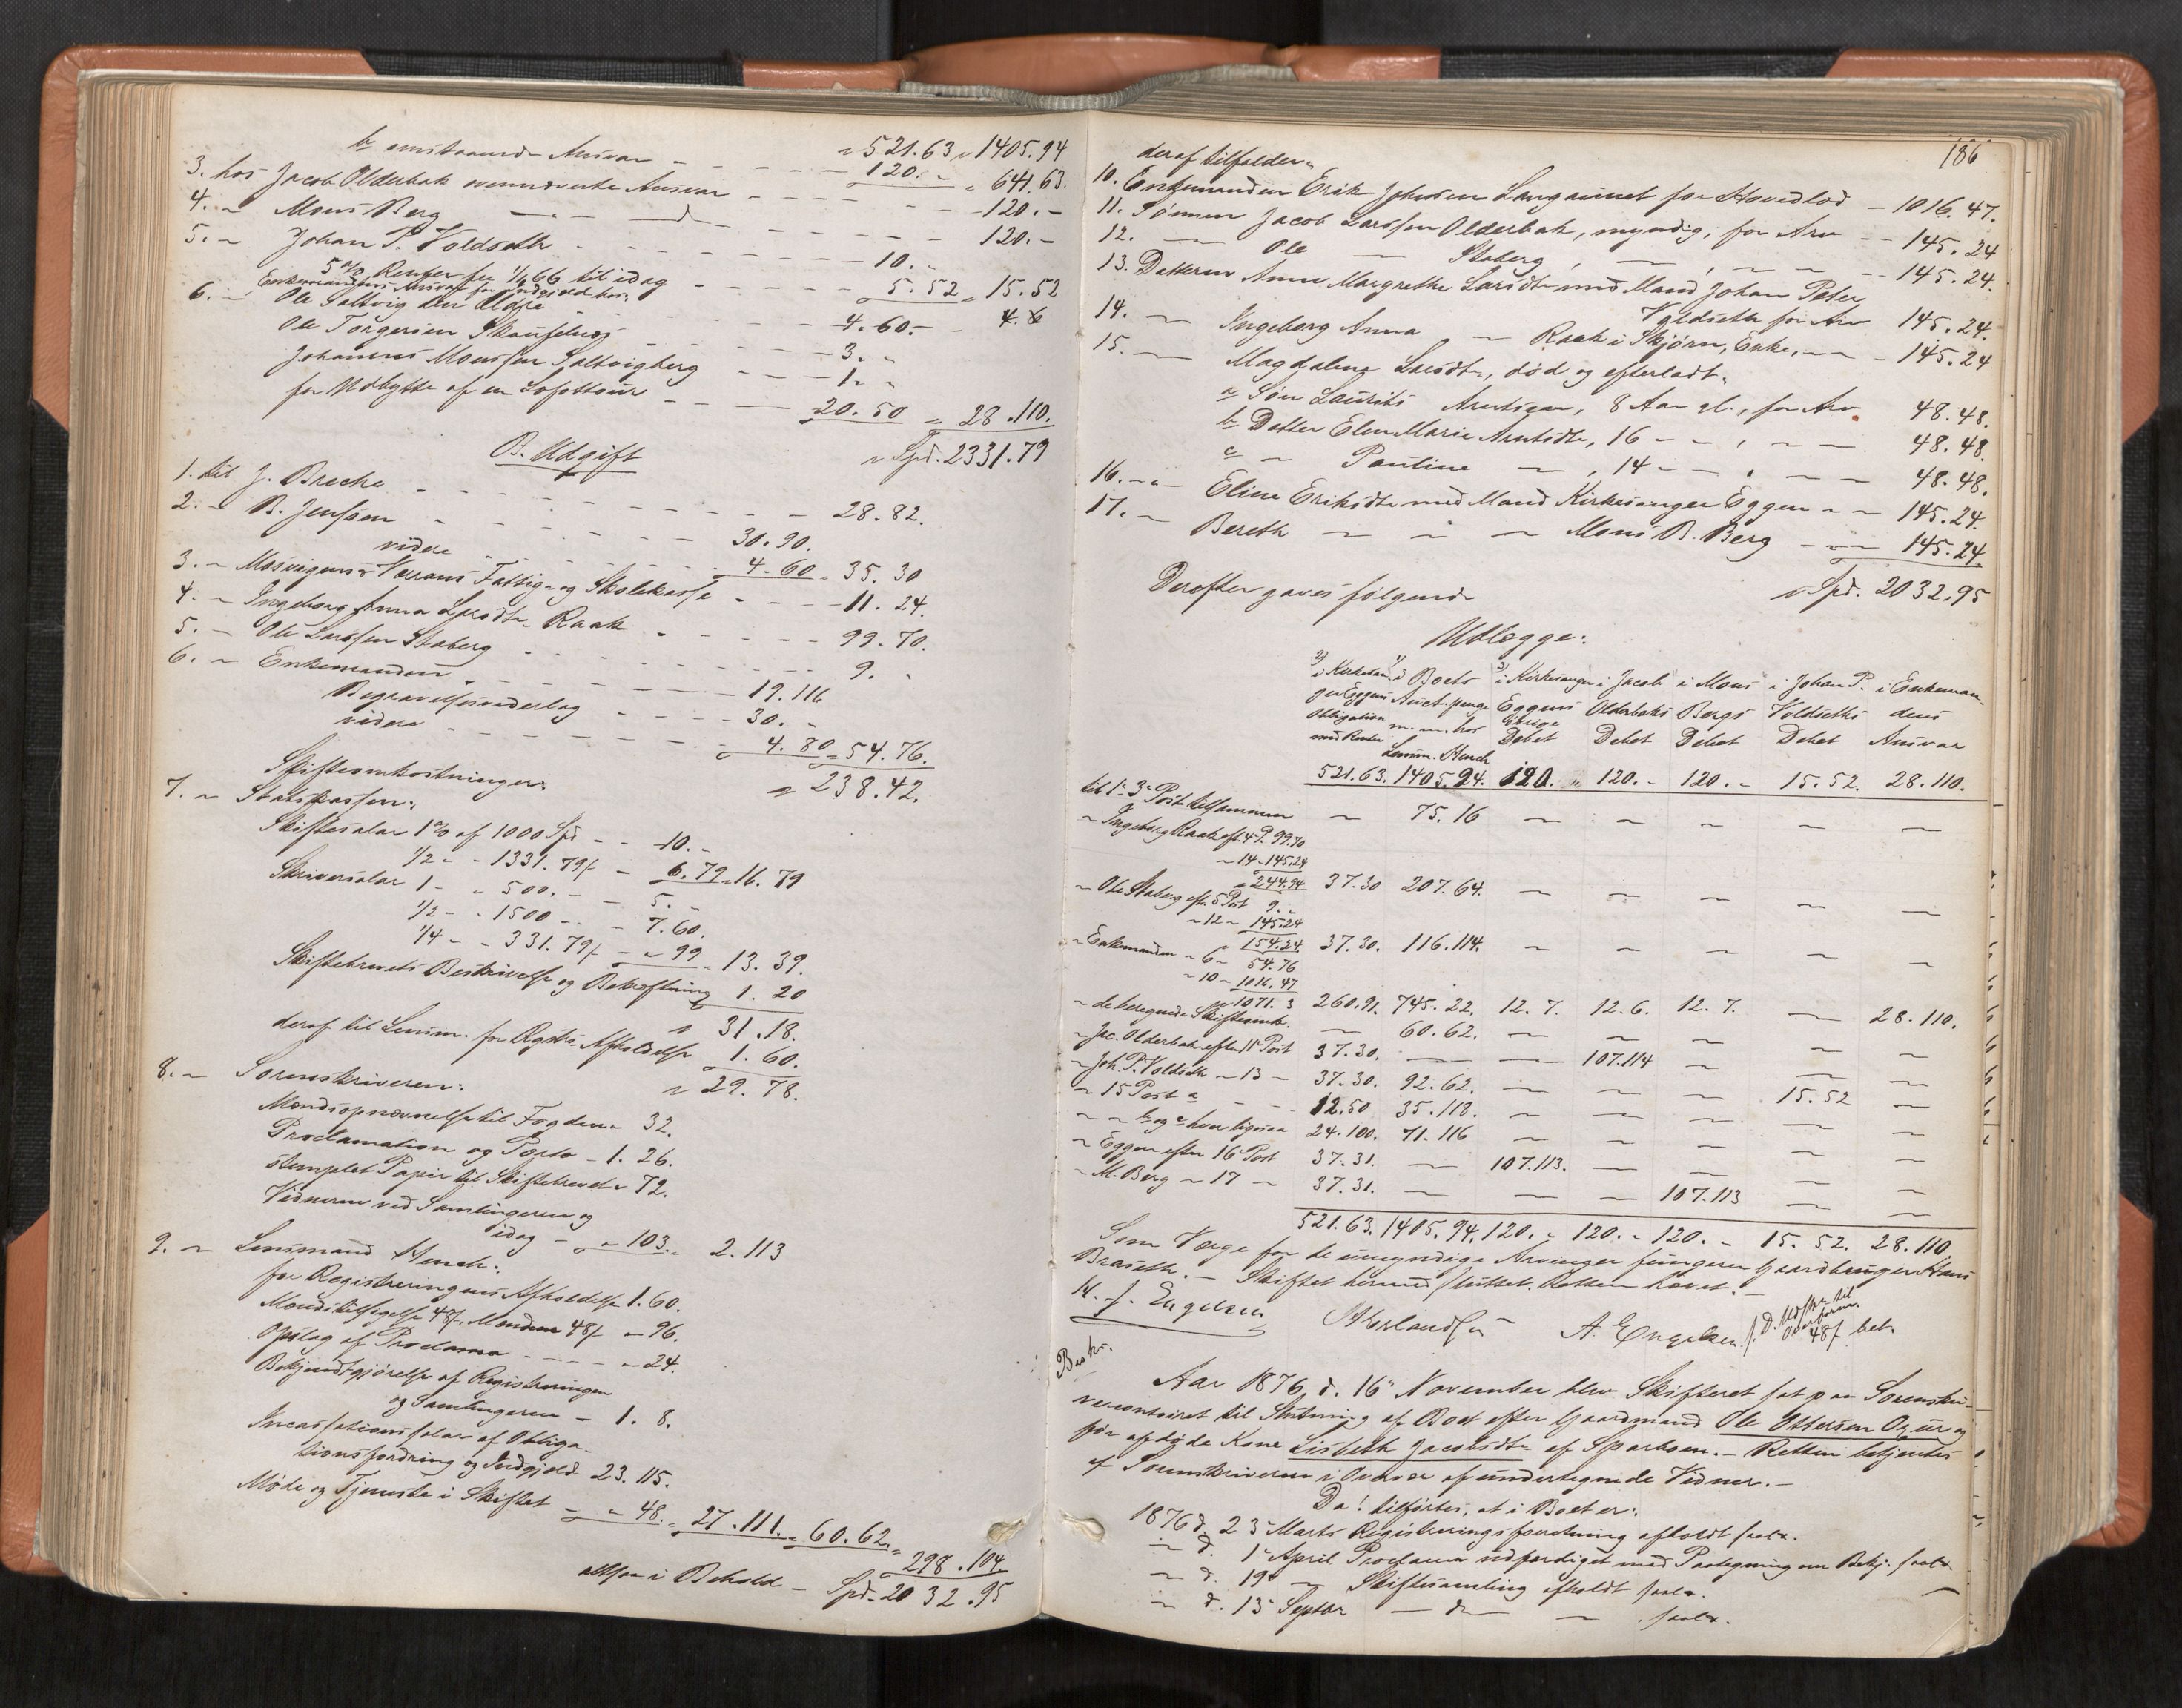 b, omstaaende Ansvar - - " 521.63 " 1405.94
3. hos Jacob Olderbak ovennævnte Ansvar - - 120. " " 641.63.
4. " Mons Berg — " — d — - - - 120. -
5. " Johan P. Voldseth - - - 120. -
10. "
5 % Renter fra 1/1 66 til idag - - 5. 52 " 15. 52
6. " Enkemandens Ansvar for Indgjeld hos:
Ole Saltvig den Ældre - - 4. 60. -
Ole Torgersen - - 3. "
Johannes Monssen Saltvigberg - - 1. "
for Udbytte af en Lofottour - - 20. 50 " 28. 110.
" Spd. 2331. 79
B. Udgift
1. til J. Brecke - - - 28. 82.
2. " B. Jenssen - - - 30. 90.
videre - - 4. 60 " 35. 30
3. " Mosvigens & Værans Fattig- og Skolekasse - - 11. 24.
4. " Ingeborg Anna Larsdtr Raak - - 99. 70.
5. " Ole Larssen Staberg - - 9. "
6. " Enkemanden - - 19. 116
Begravelsesvederlag - - 30. "
videre - - 4. 80 " 54. 76.
" 238. 42.
Skifteomkostninger:
7. " Statskassen:
Skiftesalar 1 % af 1000 Spd - - 10. "
1/2 - " 1331. 79 f - 6. 79 " 16. 79
Skriversalar 1 - " 500. - - 5. "
1/2 - " 1500 - - 7. 60.
1/4 - " 331. 79 f - " 99 " 13. 39.
Skiftebrevets Beskrivelse og Bekræftning 1. 20
" 31. 18.
deraf til Lensm. for Registr. Afholdelse 1. 60.
" 29. 78.
8. " Sorenskriveren:
Mændsopnævnelse til Fogden " 32.
Proclamation og Porto - 1. 26.
stemplet Papir til Skiftebrevet " 72.
Vidnerne ved Samlingerne og
idag - " 103. " 2. 113
9. " Lensmand Henck:
for Registreringens Afholdelse 1. 60.
Mændstilsigelse 48 f, Mændene 48 f " 96.
Opslag af Proclama - - - " 24.
Bekjendtgjørelse af Registreringen
og Samlingerne - 1. 8.
Incassationssalar af Obliga-
tionsfordring og Indgjeld 23. 115.
Møde og Tjeneste i Skiftet - " 48. " 27. 111. " 60. 62. " 298. 104.
altsaa i Behold - Spd. 2032. 95
186
deraf tilfalder:
10. Enkemanden Erik Johnsen Langaunet for Hovedlod - 1016. 47.
11. Sønnen Jacob Larssen Olderbak, myndig, for Arv - - 145. 24
12. — Ole — Staberg, —, — — - - 145. 24.
13. Datteren Anne Margrethe Larsdtr med Mand Johan Peter
Voldseth for Arv 145. 24.
14. " Ingeborg Anna — Raak i Skjørn, Enke, — - 145. 24
15. — Magdalene Larsdtr, død og efterladt:
a Søn Laurits Arntsen, 8 Aar gl., for Arv 48. 48.
b Datter Elen Marie Arntsdtr, 16 - - , — — 48. 48.
c — Pauline —, 14 - - , — — 48. 48.
16. " — Eline Eriksdtr med Mand Kirkesanger Eggen - - 145. 24.
17. " Bereth — " — Mons B. Berg - — 145. 24
" Spd. 2032. 95
Derefter gaves følgende
Udlægge:
2) i Kirkesan- 1) i Boets 3) i Kirkesanger i Jacob i Mons i Johan P. i Enkeman-
ger Eggens Auct.penge Eggens Olderbaks Bergs Voldseths dens
Obligation m. m. hos øvrige Debet Debet Debet Ansvar
med Renter Lensm. Henck Debet
521. 63. 1405. 94. 120. " 120. - 120. - 15. 52. 28. 110.
til 1-3 Post tilsammen — 75. 16 — — — — —
" Ingeborg Raak eft. 4 P. 99. 70
" 14 - 145. 24
" 244. 94 37. 30 207. 64. — — — — —
" Ole Staberg eft. 5 Post 9. "
" 12 " 145. 24
" 154. 24. 37. 30. 116. 114. — — — — —
" Enkemanden " 6 " 54. 76
" 10 - 1016. 47
" 1071. 3 260. 91. 745. 22. 12. 7. 12. 6. 12. 7. — 28. 110.
" de beregnede Skifteomk. — 60. 62. — — — — —
" Jac. Olderbak efter 11 Post 37. 30. — — 107. 114 — — —
" Joh. P. Voldseth " 13 " 37. 30. 92. 62. — — — 15. 52 —
" 15 Post a - - 12. 50 35. 118. — — — — —
" " b og c hver ligesaa 24. 100. 71. 116 — — — — —
" Eggen efter 16 Post 37. 31. — 107. 113. — — — —
" M. Berg " 17 " 37. 31. — — — 107. 113 — —
521. 63. 1405. 94. 120. " 120. " 120. - 15. 52. 28. 110.
Som Værge for de umyndige Arvinger fungerer Gaardbruger Hans
Braseth. - Skiftet hermed sluttet. Retten hævet. -
M. J. Engelsen A. Engelsen. 48 f bet.
Beskr.
Aar 1876, d. 16 November blev Skifteret sat paa Sorenskri-
vercontoiret til Slutning af Boet efter Gaardmand Ole Ottersen Oxur og
før afdøde Kone Lisbeth Jacobsdtr af Sparboen. - Retten betjentes
af Sorenskriveren i Overvær af undertegnede Vidner. -
Da! tilførtes, at i Boet er:
1876 d. 23 Marts Registreringsforretning afholdt saal.
" d. 1 April Proclama udfærdiget med Paategning om Bekj. saal.
" d. 19 " Skiftesamling afholdt saal.
" d. 13 Septbr — d — " saal.